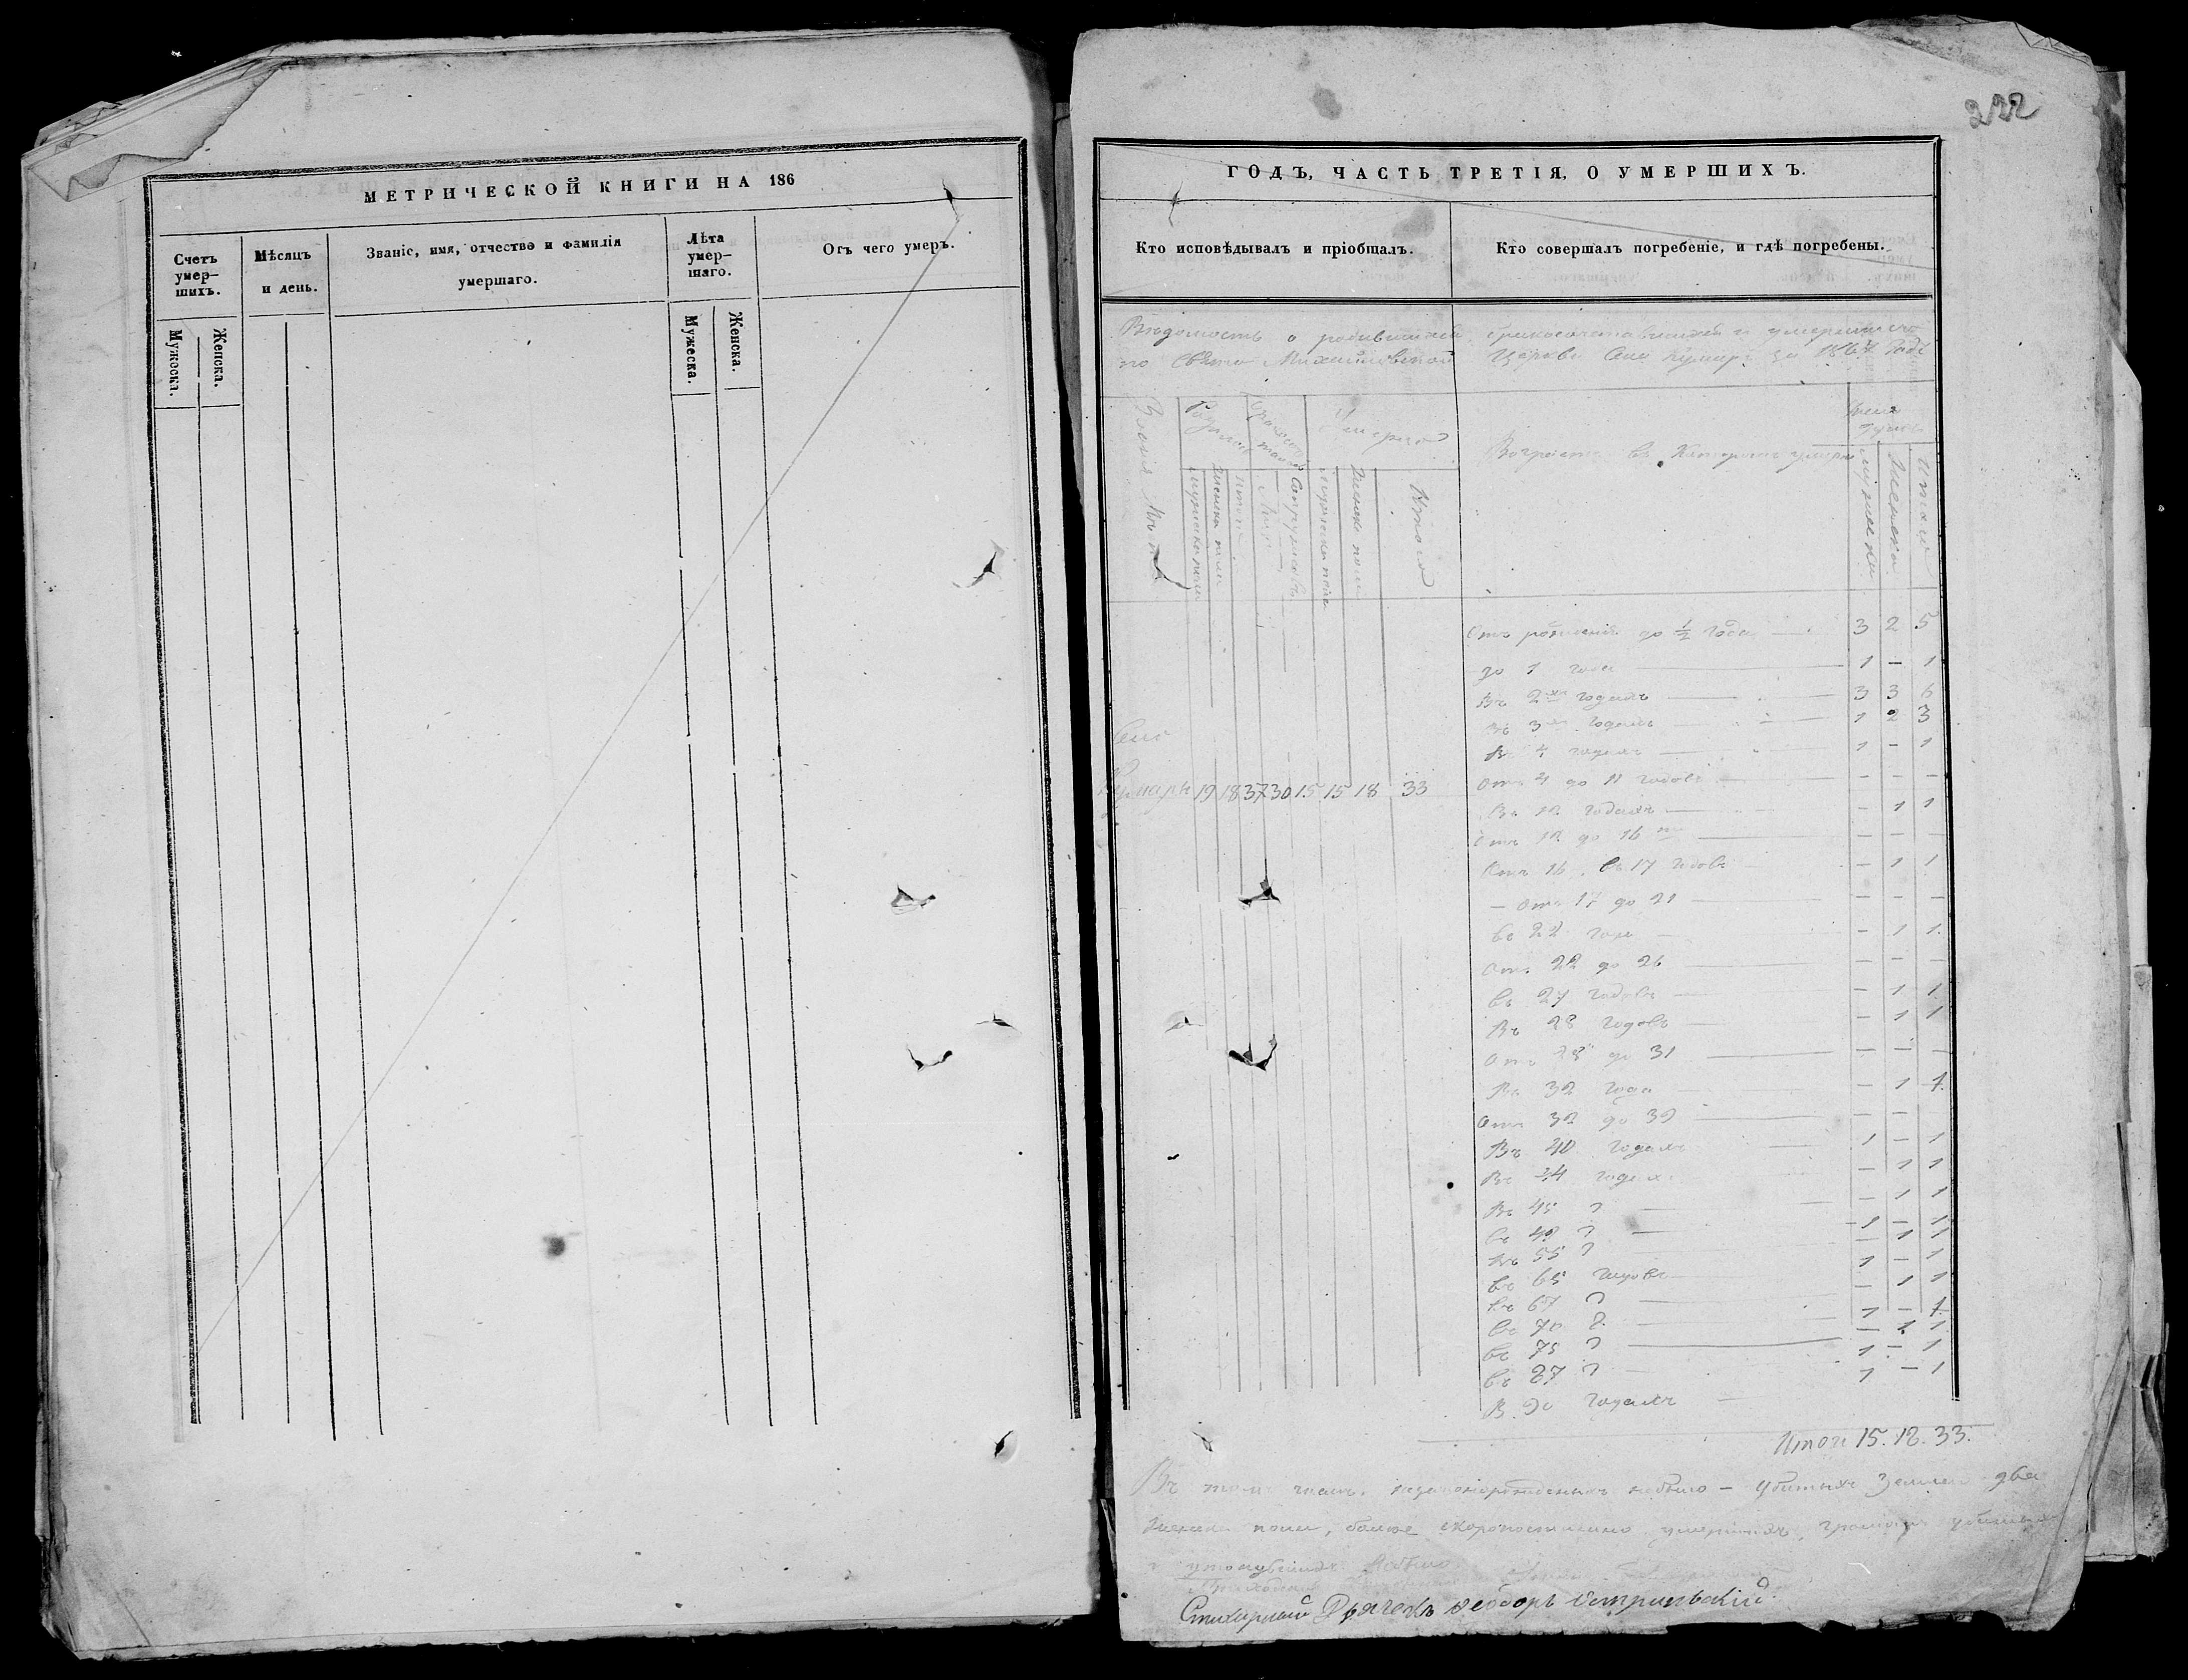 МЕТРИЧЕСКОЙ КНИГИ НА 186
Счетъ умер-шихъ.
Мѣсяцъ и день.
Званіе, имя, отчество и фамилія умершаго.
Лѣта умер-шаго.
Отъ чего умеръ.
Мужеска.
Женска.
Мужеска.
Женска.
232
ГОДЪ, ЧАСТЬ ТРЕТІЯ, О УМЕРШИХЪ.
Кто исповѣдывалъ и пріобщалъ.
Кто совершалъ погребеніе, и гдѣ погребены.
Вѣдомость о родившихся, бракосочетавшихся и умершихъ
по Свято Михайловской Церкви Села за 1867 Годъ
Умерло
Мужеска пола
Женска пола
Итого
Мужеска пола
Женска пола
Итого
Возрастъ въ Которомъ умерли
Мужеска
Женска
Итого
Отъ рожденія до ½ Года 3 2 5
до 1 года 1 — 1
Въ 2хъ годахъ 3 3 6
Въ 3хъ годахъ 1 2 3
Въ 4 годахъ 1 — 1
Отъ 4 до 11 годовъ — — —
Въ 12 годахъ — 1 1
Отъ 12 до 16 — — —
Отъ 16 въ 17 годовъ — 1 1
— Отъ 17 до 21 — — —
въ 22 года — 1 1
Отъ 22 до 26 — — —
въ 27 годовъ — 1 1
Въ 28 годовъ — 1 1
Отъ 28 до 31 — — —
Въ 32 года — 1 1
Отъ 32 до 39 — —
Въ 40 годахъ 1 — 1
Въ 44 годах. — 1 1
Въ 45 — 1 1
въ 48 — 1 — 1
Въ 55 — 1 1
въ 65 годовъ 1 — 1
въ 67 — 1 1
въ 70 1 — 1
въ 75 — 1 1
въ 87 1 — 1
В. 90 годахъ 1 — 1
Село
19 18 37 30 15 15 18 33
Итого 15. 18. 33.
Въ томъ числѣ незаконорожденныхъ небыло — Убитыхъ Землею два
Женска пола, болѣе скоропостижно умершихъ, громомъ убитыхъ
и утонувшихъ небыло
Стихарный Дьячекъ Феодоръ